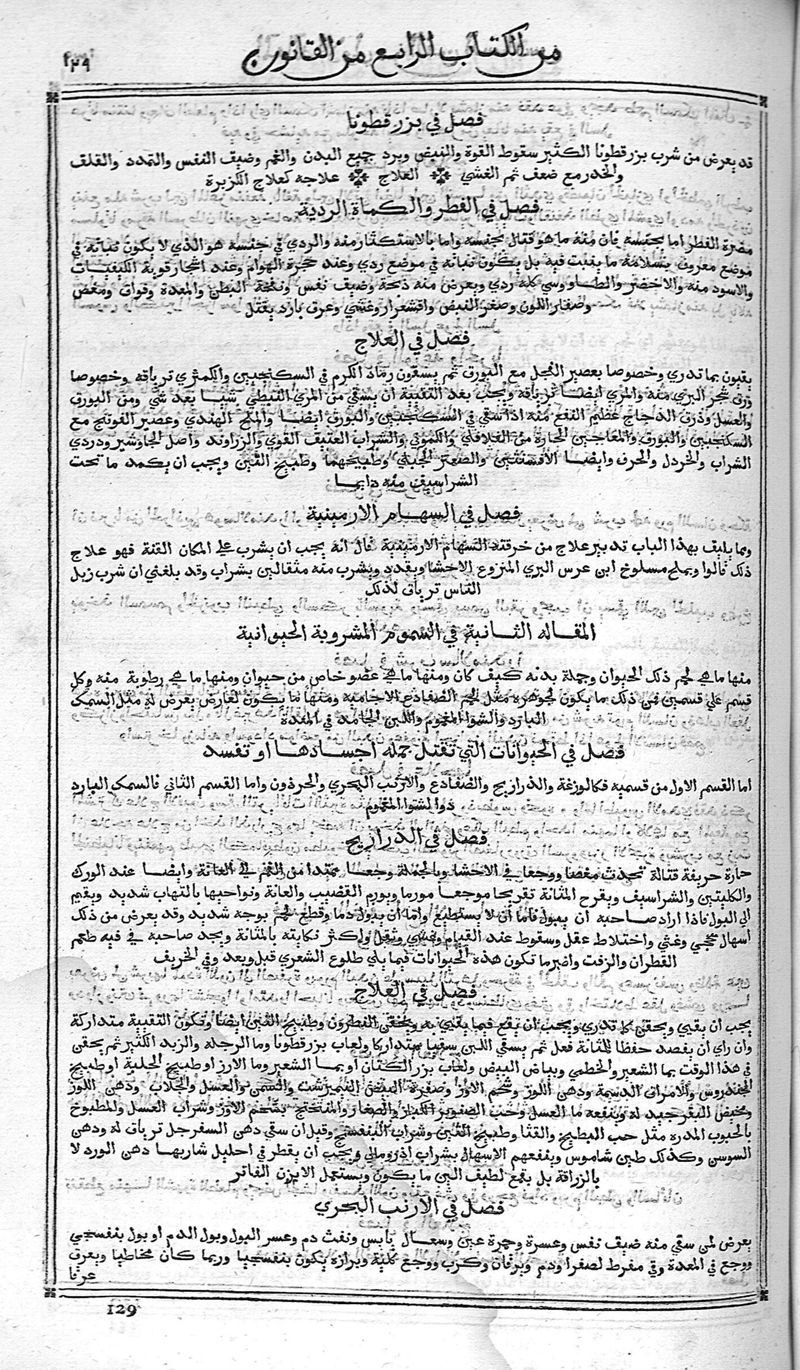 ١٢٩
من الكتاب الرابع من القانون
فصل في بزر قطونا
قد يعرض من شرب بزر قطونا الكثير سقوط القوة والنبض وبرد جميع البدن والغم وضيق النفس والتمدد والقلق
والخدر مع ضعف ثم الغشي العلاج علاجه كعلاج الكزبرة
فصل في الفطر والكماة الردية
مضرة الفطر اما بجنسه فان منه ما هو قتال بجنسه واما بالاستكثار منه والردي في جنسه هو الذي لا يكون نباته في
موضع معروف بسلامة ما ينبت فيه بل يكون نباته في موضع ردي وعند حجرة الهوام وعند اشجار قوية الكيفيات
والاسود منه والاخضر والطاوسي كله ردي ويعرض منه ذبحة وضيق نفس ونفخة البطن والمعدة وفواق ومغص
وصفار اللون وصغر النبض واقشعرار وغشي وعرق بارد يقتل
فصل في العلاج
يقيون بما تدري وخصوصا بعصير الفجل مع البورق ثم يسقون رماد الكرم في السكنجبين والكمثري ترياقه وخصوصا
ورق شجر البري منه والمري ايضا ترياقه ويجب بعد التقية ان يسقي من المري النبطي شيا بعد شي ومن البورق
والعسل وذرق الدجاج عظيم النفع منه اذا سقي في السكنجبين والبورق ايضا والملح الهندي وعصير الفوتنج مع
السكنجبين والبورق والمعاجين الحارة من الفلافلي والكموني والشراب العتيق القوي والزراوند واصل الجاوشير ودردي
الشراب والخردل والحرف وايضا الافسنتين والصعتر الجبلي وطبيخهما وطبيخ التين ويجب ان يكمد ما تحت
الشراسيف منه دايما
فصل في السهام الارمينية
ومما يليق بهذا الباب تدبير علاج من خرقته السهام الارمينية قال انه يجب ان يشرب على المكان القنة فهو علاج
ذلك قالوا ويملح مسلوخ ابن عرس البري المنزوع الاحشا ويقدد ويشرب منه مثقالين بشراب وقد بلغني ان شرب زبل
الناس ترياق لذلك
المقاله الثانية في السموم المشروبة الحيوانية
منها ما هي لحم ذلك الحيوان وجملة بدنه كيف كان ومنها ما هي عضو خاص من حيوان ومنها ما هي رطوبة منه وكل
قسم علي قسمين فمن ذلك ما يكون لجوهره مثل لحم الضفادع الاجامية ومنها ما تكون لعارض يعرض له مثل السمك
البارد والشوا المغموم واللبن الجامد في المعدة
فصل في الحيوانات التي تقتل جمله اجسادها او تفسد
اما القسم الاول من قسميه فكالوزغة والذراريح والضفادع والارنب البحري والحرذون واما القسم الثاني فالسمك البارد
ذوا لشوا المغموم
فصل في الذراريح
حارة حريفة قتالة تحدث مغصا ووجعا في الاحشا وبالجملة وجعا ممتدا من الفم الي العانة وايضا عند الورك
والكليتين والشراسيف ويقرح المثانة تقريحا موجعا مورما ويورم القضيب والعانة ونواحيها بالتهاب شديد ويقيم
الي البول فاذا اراد صاحبه ان يبول فاما ان لا يستطيع واما ان يبول دما وقطع لحم بوجع شديد وقد يعرض من ذلك
اسهال سحجي وغثي واختلاط عقل وسقوط عند القيام وغشي وثقل واكثر نكايته بالمثانة ويجد صاحبه في فيه طعم
القطران والزفت واضر ما تكون هذه الحيوانات فيما يلي طلوع الشعري قبل وبعد وفي الخريف
فصل في العلاج
يجب ان يقيي ويحقن كما تدري ويجب ان يقع فيما يقيي به ويحقن النطرون وطبيخ التين ايضا وتكون التقية متداركة
وان راي ان يفصد حفظا للمثانة فعل ثم يسقي اللبن سقيا متداركا ولعاب بزر قطونا وما الرجله والزبد الكثير ثم يحقن
في هذا الوقت بما الشعير والخطمي وبياض البيض ولعاب بزر الكتان او بما الشعير وما الارز او طبيخ الحلبة او طبيخ
الخندروس والامراق الدسمة ودهن اللوز وشحم الاوز وصفرة البيض النيمبرشت والسمن والعسل والجلاب ودهن اللوز
ومخيض البقر جيد له وينفعه ما العسل وحب الصنوبر الكبار والصغار والمفتخج بشحم الاوز وشراب العسل والمطبوخ
بالحبوب المدره مثل حب البطيخ والقثا وطبيخ التين وشراب البنفسج وقيل ان سقي دهن السفرجل ترياق له ودهن
السوسن وكذلك طين شاموس وينفعهم الاسهال بشراب ادرومالي ويجب ان يقطر في احليل شاربها دهن الورد لا
بالزراقة بل بقمع لطيف الين ما يكون ويستعمل الابزن الفاتر
فصل في الارنب البحري
يعرض لمن سقي منه ضيق نفس وعسرة وحمرة عين وسعال يابس ونفث دم وعسر البول وبول الدم او بول بنفسجي
ووجع في المعدة وقي مفرط لصفرا ودم ويرقان وكرب ووجع كلية وبرازه يكون بنفسجيا وربما كان مخاطيا ويعرق
عرقا
129